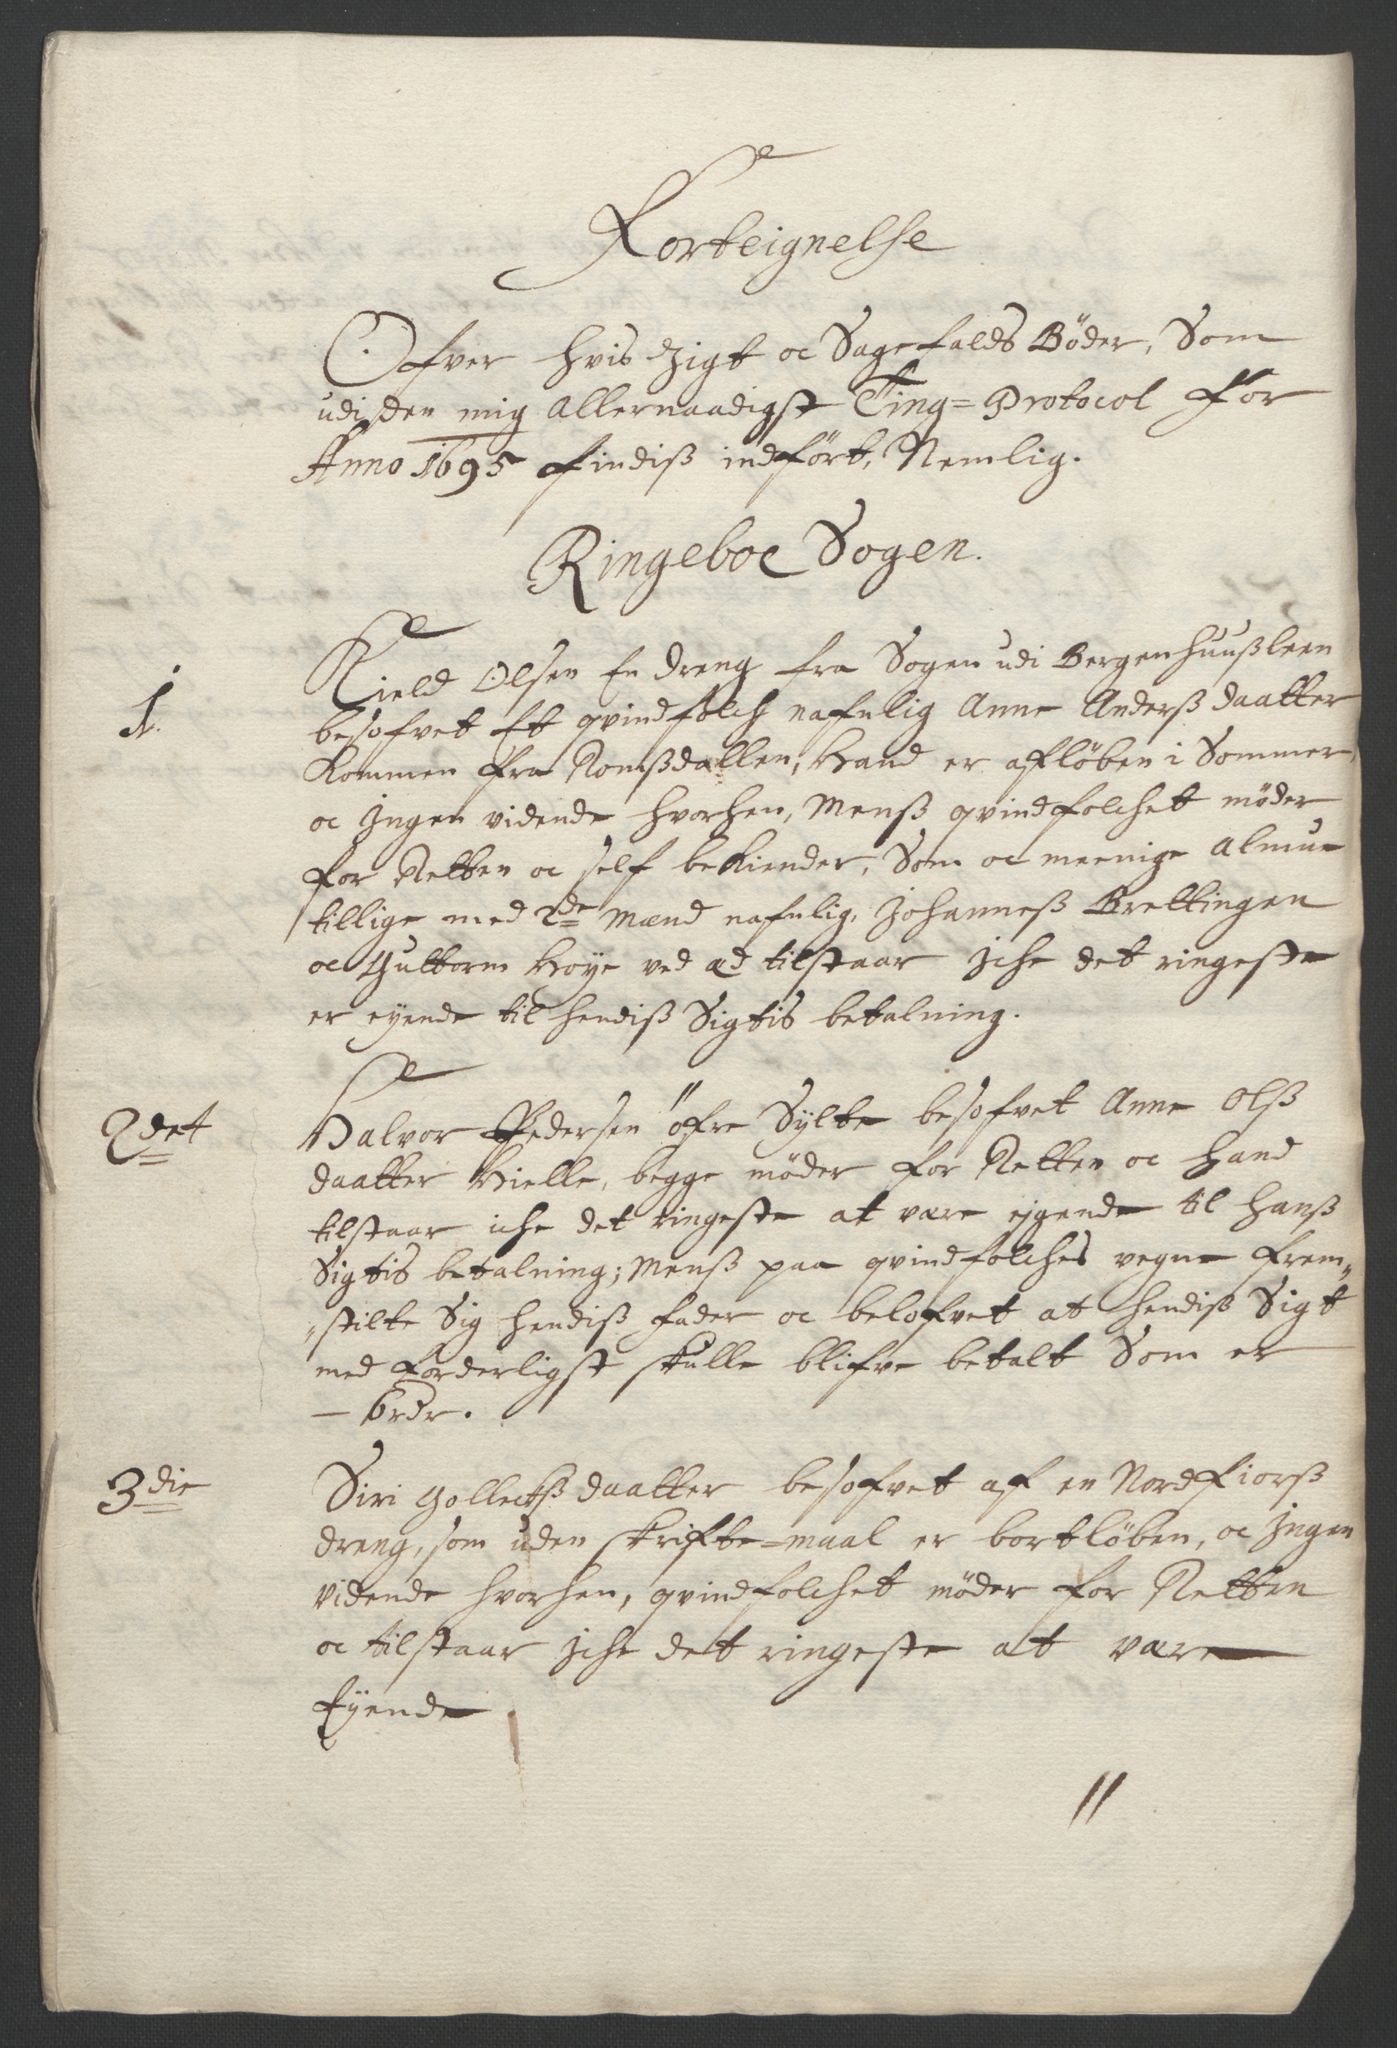 Forteignelse
Ofver hvis Sigt oc Sagefalds Bøder, Som
udi den mig Allernaadigst Ting=Protocol For
Anno 1695 findiß indført, Nemlig.
Ringeboe Sogen.
1. Kield Olsen En dreng fra Sogen udi Bergenhuußleen
besofvet Et qvindfolch nafnlig Anne Anderß daatter
Kommen fra Romßdallen, Hand er afløben i Sommer,
oc Ingen vidende hvorhen, Menß qvindfolchet møder
for Retten oc self bekiender, Som oc meenige almue
tillige med 2de Mænd nafnlig, Johanneß Brettingen
oc Guttorm Høye ved ad tilstaar Iche det ringeste
er eyende til hendiß Sigtis betalning.
2det Halvor Pedersen öfre Sylte besofvet Anne Olß
daatter Hielle, begge møder for Retten oc hand
tilstaar iche det ringeste at vare eygende til hanß
Sigtis betalning; Menß paa qvindfolches vegne frem„
„stilte Sig hendiß fader oc belofvet at hendiß Sigt
med forderligst skulle blifve betalt Som er
— 6rdr.
3die Siri Golleckß daatter besofvet af en Nordfiorß
dreng, som uden skrifte=maal er bortløben, oc Ingen
vidende hvorhen, qvindfolchet møder for Retten
oc tilstaar Iche det ringeste at vare
Eyende